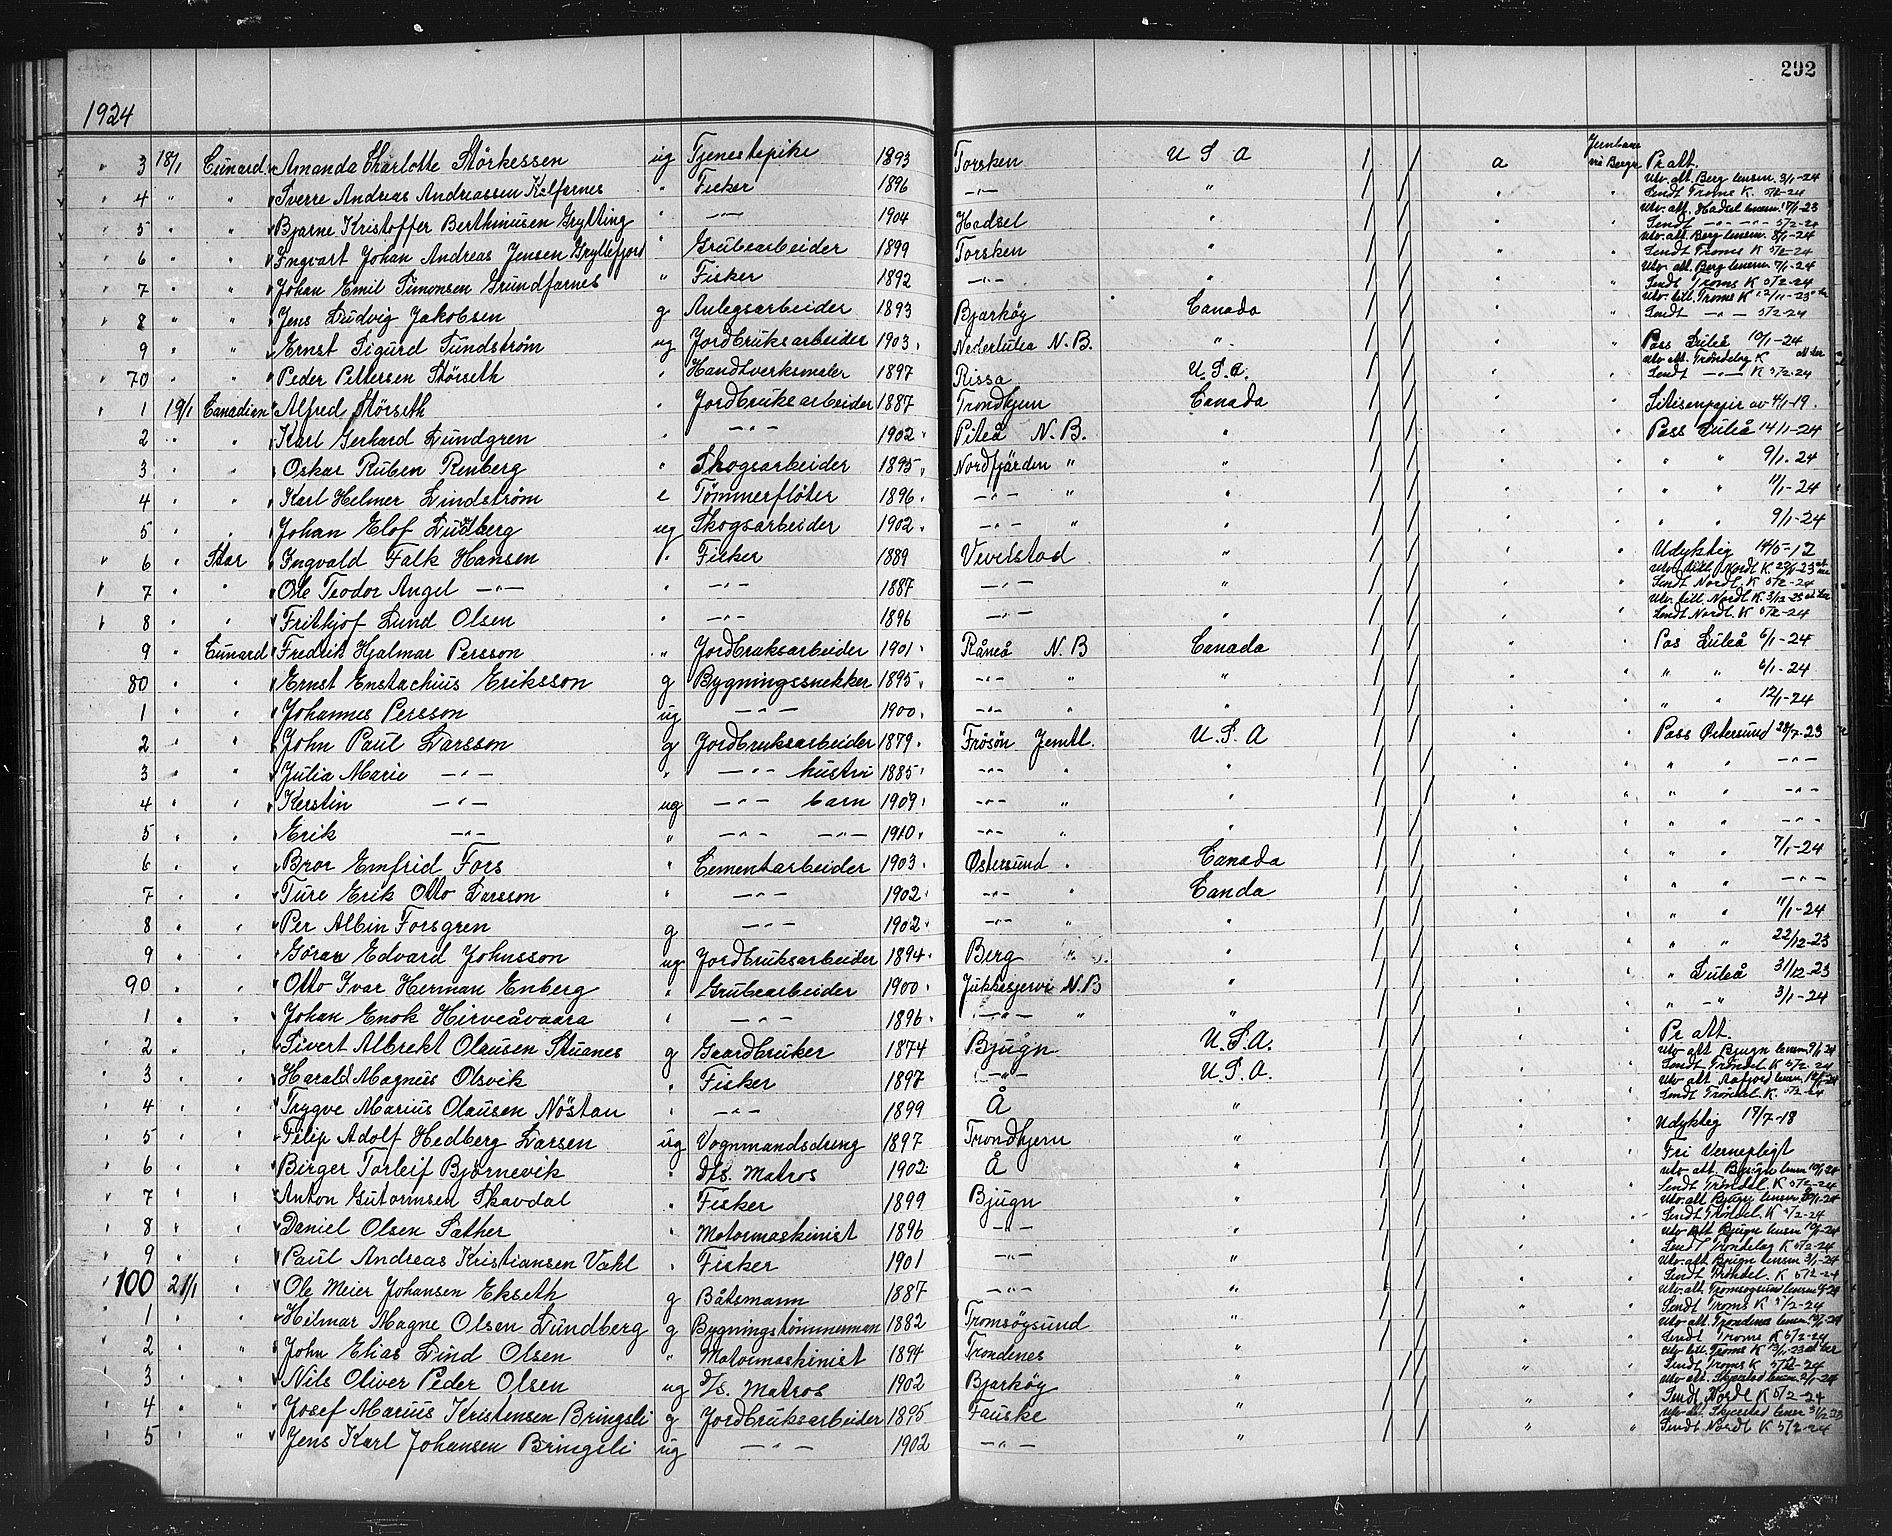 292
1924
" 3 18/1 Cunard " Amanda Charlotte Störkessen ug Tjenestepike 1893 Torsken U S A / / a Jernbane via Bergen Pr att.
" 4 " " " Sverre Andreas Andreassen Kalfarnes " Fisker 1896 — " — " / / " " Utv. att. Berg lensm. 3/1-24 Sendt Troms K. 5/2-24
" 5 " " " Bjarne Kristoffer Berthinusen Grytting " — " — 1904 Hadsel " / / " " Utv. att. Hadsel lensm. 17/1-23 Sendt — " — 5/2-24
" 6 " " " Ingvart Johan Andreas Jensen Gryllefjord " Grubearbeider 1899 Torsken " / / " " Utv. att. Berg lensm. 8/1-24 Sendt Troms K 5/2-24
" 7 " " " Johan Emil Simonsen Grundfarnes " Fisker 1892 — " — " / / " " Utv. att. Berg lensm. 7/1-24 Sendt Troms K 5/2-24
" 8 " " " Jens Ludvig Jakobsen g Anlegsarbeider 1893 Bjarköy Canada / / " " Utv. bill. Troms K 12/11-23 Sendt — " — 5/2-24
9 " " " Ernst Sigurd Sundström ug Jordbruksarbeider 1903 Nederlulea N.B. " / / " " Pass Luleå 10/1-24
" 70 " " " Peder Pettersen Störseth " Handtverksmaler 1897 Rissa U.S.A. / / " " Utv. att. Tröndelag K Sendt — " — K 5/2-24
" 1 19/1 Canadien " Alfred Störseth " Jordbruksarbeider 1887 Trondhjem Canada / / " " Sitisenpapir av 4/1-19.
2 " " " Karl Gerhard Lundgren " — " — 1902 Piteå N.B. " / / " " Pass Luleå 14/1-24
3 " " " Oskar Ruben Renberg " Skogsarbeider 1895 Nordfjärden " " / / " " " " 9/1-24
4 " " " Karl Helmer Lindström e Tömmerflöter 1896 — " — " " / / " " " " 11/1-24
5 " " " Johan Elof Lundberg ug Skogsarbeider 1902 — " — " " / / " " " " 9/1-24
" 6 " Star " Ingvald Falk Hansen " Fisker 1889 Vevelstad " / / " " Udyktig 14/5-12
" 7 " " " Ole Teodor Angel — " — " — " — 1887 — " — " / / " " Utv. bill. Nordl K. 29/1-23 Sendt Nordl. K 5/2-24
" 8 " " " Frithjof Lund Olsen " — " — 1896 — " — " / / " " Utv. bill. Nordl K 3/12-23 Sendt Nordl K 5/2-24
9 " Cunard " Fredrik Hjalmar Persson " Jordbruksarbeider 1901 Råneå N.B Canada / / " " Pas Luleå 5/1-24
80 " " " Ernst Enstachius Eriksson g Bygningssnekker 1895 — " — " " / / " " " " 4/1-24
1 " " " Johannes Persson ug — " — 1900 — " — " " / / " " " " 12/1-24
2 " " " John Paul Larsson g Jordbruksarbeider 1879 Frösön Jemtl. U.S.A / / " " Pass Østersund 28/7-23
3 " " " Julia Marie — " — " — " — hustru 1885 — " — " " / / " " " " — " —
4 " " " Kerstin — " — ug — " — barn 1909 — " — " " / / " " " " — " —
5 " " " Erik — " — " — " — — " — 1910 — " — " " / / " " " " — " —
6 " " " Bror Emfrid Fors " Cementarbeider 1903 Østersund " Canada / / " " " " 7/1-24
7 " " " Ture Erik Otto Larsson " — " — 1902 — " — " Canda / / " " " " — " —
8 " " " Per Albin Forsgren g — " — 1902 — " — " " / / " " " " 11/1-24
9 " " " Göran Edvard Johnsson ug Jordbruksarbeider 1894 Berg " " / / " " " " 22/12-23
90 " " " Otto Ivar Herman Enberg " Grubearbeider 1900 Jukkasjervi N.B " / / " " " Luleå 31/12-23
1 " " " Johan Enok Hirveåvaara " — " — 1896 — " — " " / / " " " — " — 3/1-24
" 2 " " " Sivert Albrekt Olausen Stuanes g Gaardbruker 1874 Bjugn U.S.A. / / " " Pr att.
" 3 " " " Harald Magnus Olsvik " Fisker 1897 — " — U.S.A. / / " " Utv att Bjugn lensm. 9/1-24 Sendt Tröndel. K 5/2 24
" 4 " " " Trygve Marius Olausen Nöstan " — " — 1899 Å " / / " " Utv. att Aafjord lensm. 14/1-24 Sendt Tröndel K. 5/2-24
" 5 " " " Filip Adolf Hedberg Larsen ug Vognmandsdreng 1897 Trondhjem " / / " " Udyktig 17/7-18
" 6 " " " Birger Torleif Björnevik " D/s. Matros 1902 Å " / / " " Fri Vernepligt
" 7 " " " Anton Gutormsen Skavdal " Fisker 1899 Bjugn " / / " " Utv. att. Bjugn lensm 10/1-24 Sendt Tröndel. K 5/2-24
" 8 " " " Daniel Olsen Sather " Motormaskinist 1896 — " — " / / " " Utv. att Bjugn lensm 10/1-24 Sendt Tröndel. K 5/2-24
" 9 " " " Paul Andreas Kristiansen Vakl " Fisker 1901 — " — " / / " " Utv att Bjugn lensm 10/1-24 Sendt Tröndelag K 5/2-24
" 100 21/1 " " Ole Meier Johansen Ekseth g Båtsmann 1887 — " — " / / " " Utv. att. Bjugn lensm 3/1-24 Sendt Tröndel. K 5/2-24
" 1 " " " Hilmar Magne Olsen Lundberg g Bygningstömmerman 1882 Tromsöysund " / / " " Utv. att. Tromsöysund lensm Sendt Troms K 5/2-24
" 2 " " " John Elias Lind Olsen " Motormaskinist 1894 Trondenes " / / " " Utv att. Trondenes lensm. 10/1-24 Sendt Troms K 5/2-24
" 3 " " " Nils Oliver Peder Olsen ug D/s. Matros 1902 Bjarköy " / / " " Utv bill. Troms K 13/11-23 Sendt Troms K 5/2-24
" 4 " " " Josef Marius Kristensen Bringsli g Jordbruksarbeider 1895 Fauske " / / " " Utv. att. Skjerstad lensm. 2/1-24 Sendt Nordl K 5/2-24
" 5 " " " Jens Karl Johansen Bringsli ug — " — 1902 — " — " / / " " Utv. att. Skjerstad lensm 31/12 23 Sendt Nordl K 5/2-24